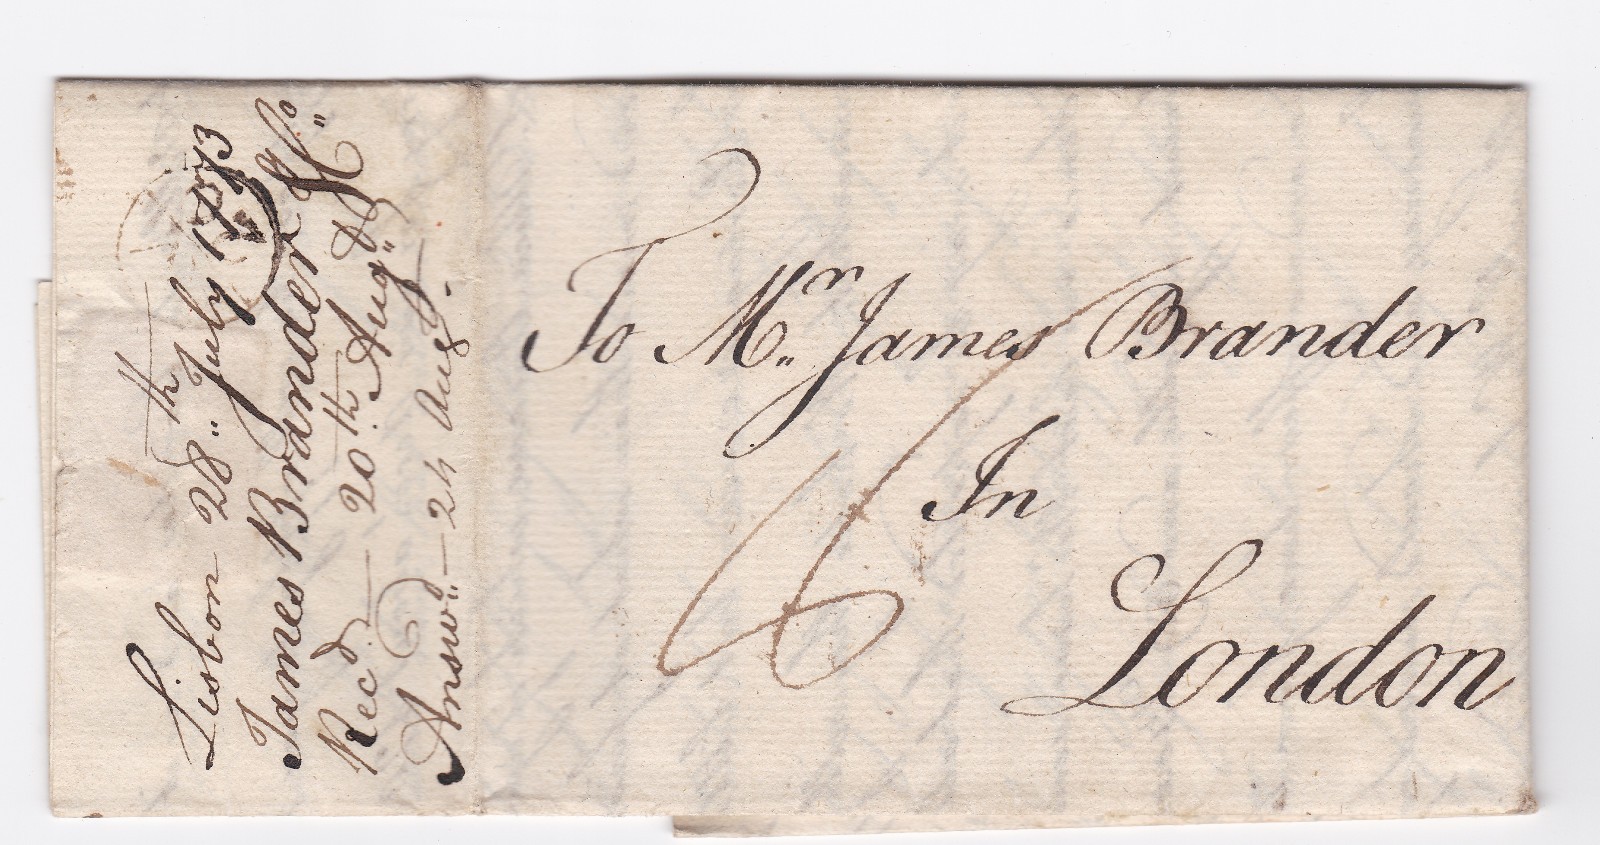 To Mr. James Brander
In
London
Lisbon 28th July 1773
James Brander & Co
Recd 20th Augt
Answd 24 Aug